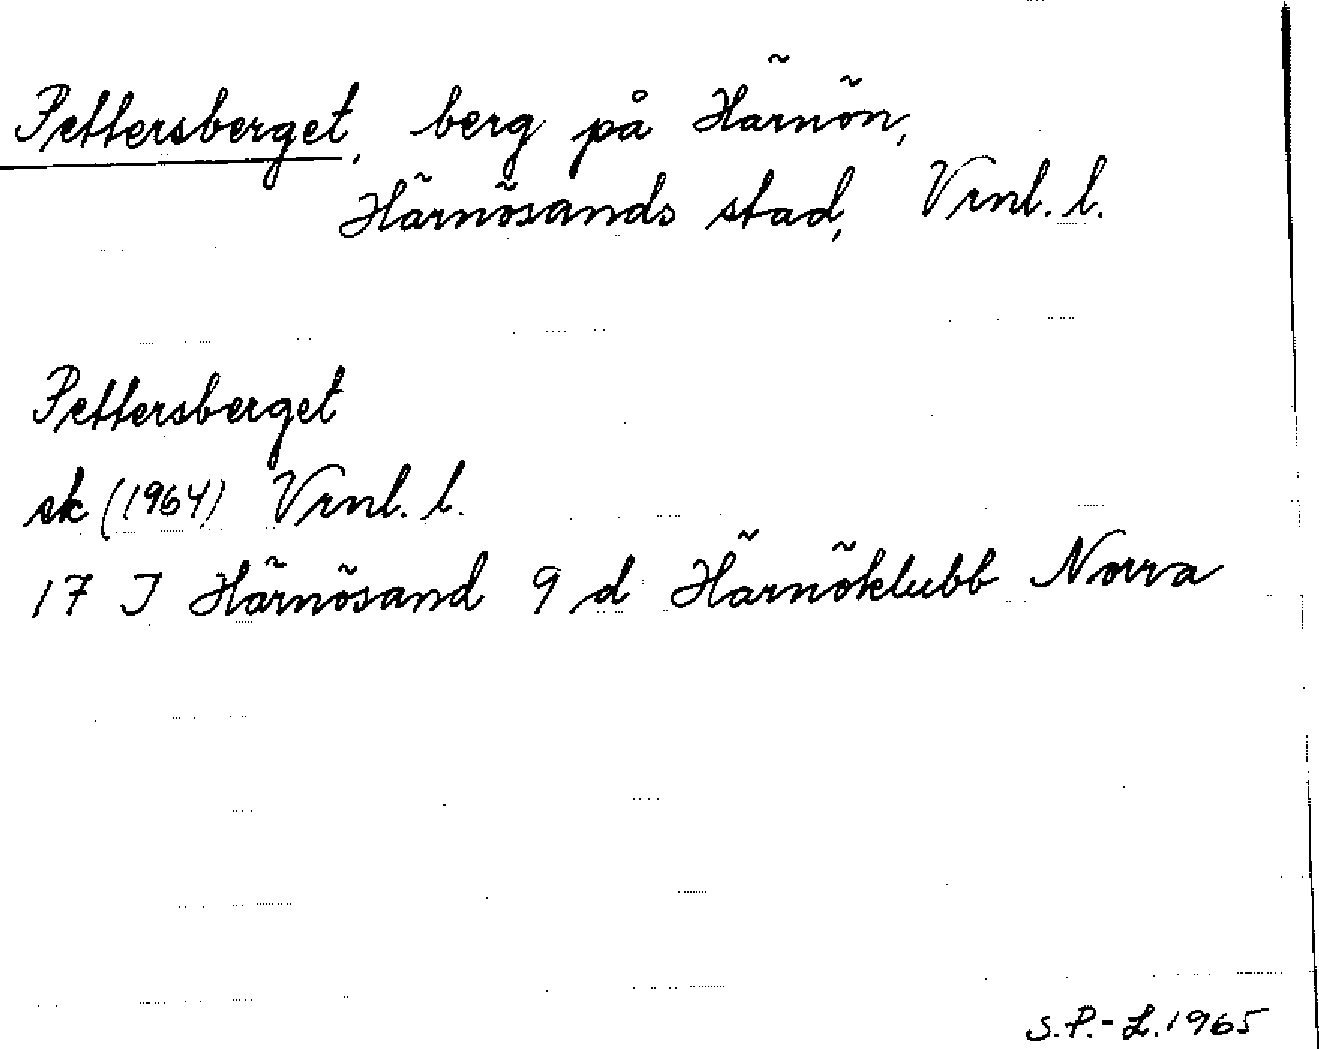 Pettersberget, berg på Härnön,
Härnösands stad, Vrnl. l.
Pettersberget
sk (1964) Vrnl. l.
17 I Härnösand 9 d Härnöklubb Norra
S.P.-L. 1965